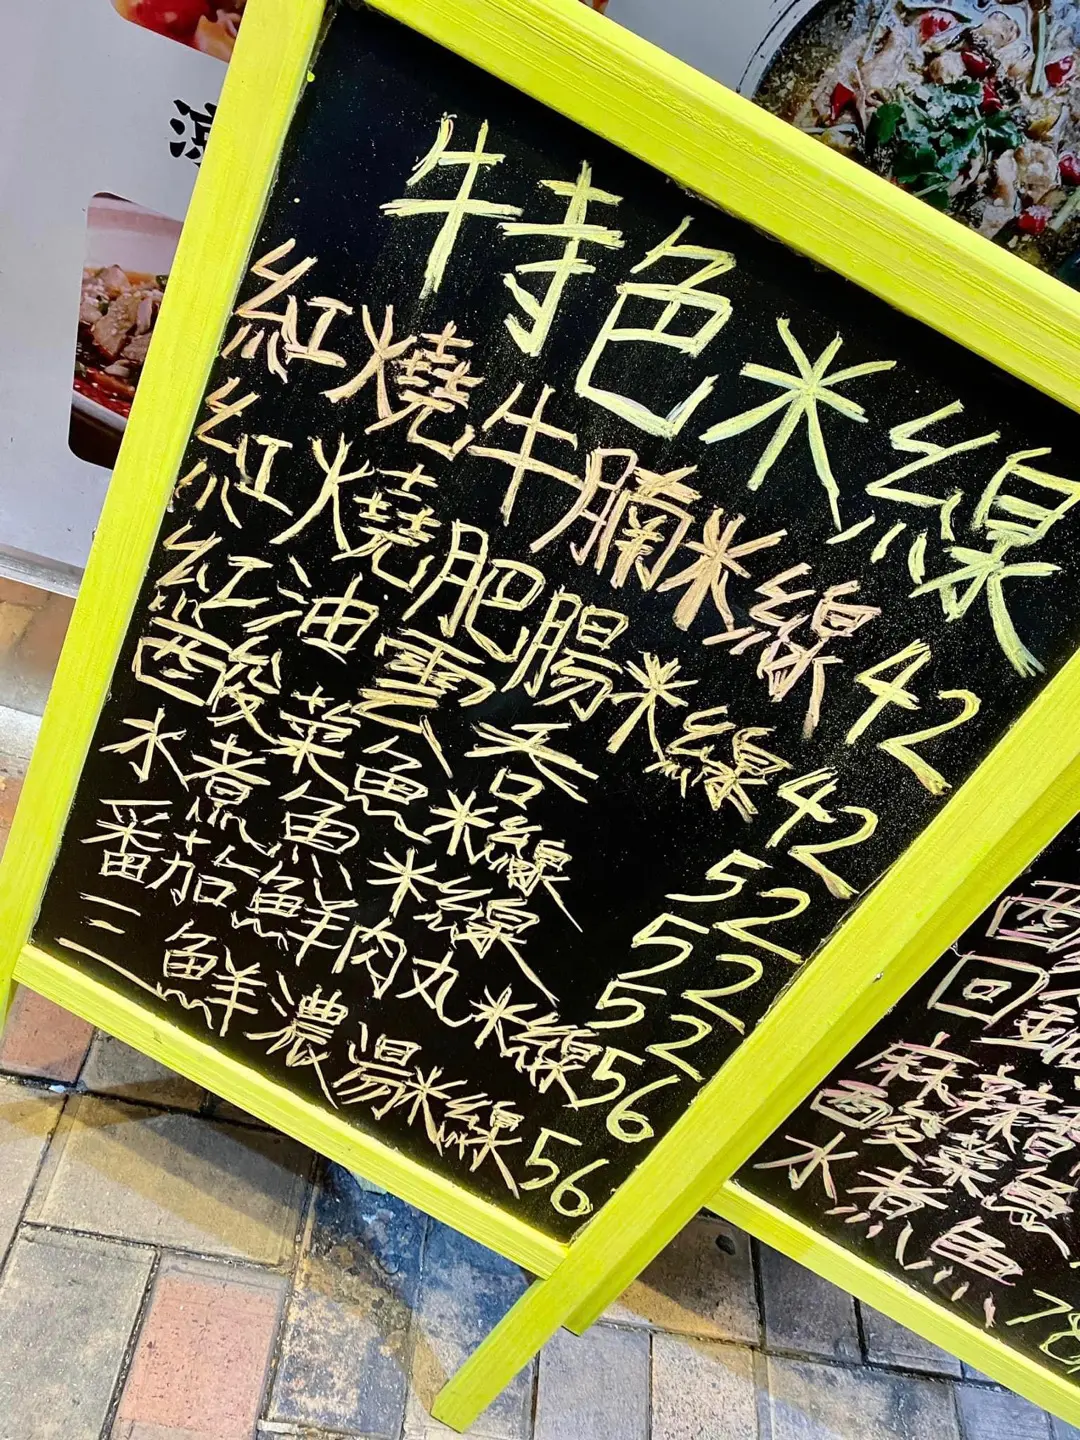 特色米線
紅燒牛腩米線 42
紅燒肥腸米線 42
紅油雲吞 52
酸菜魚米線 52
水煮魚米線 52
番茄鮮肉丸米線 56
三鮮濃湯米線 56
回鍋
麻辣香
酸菜魚
水煮魚 78